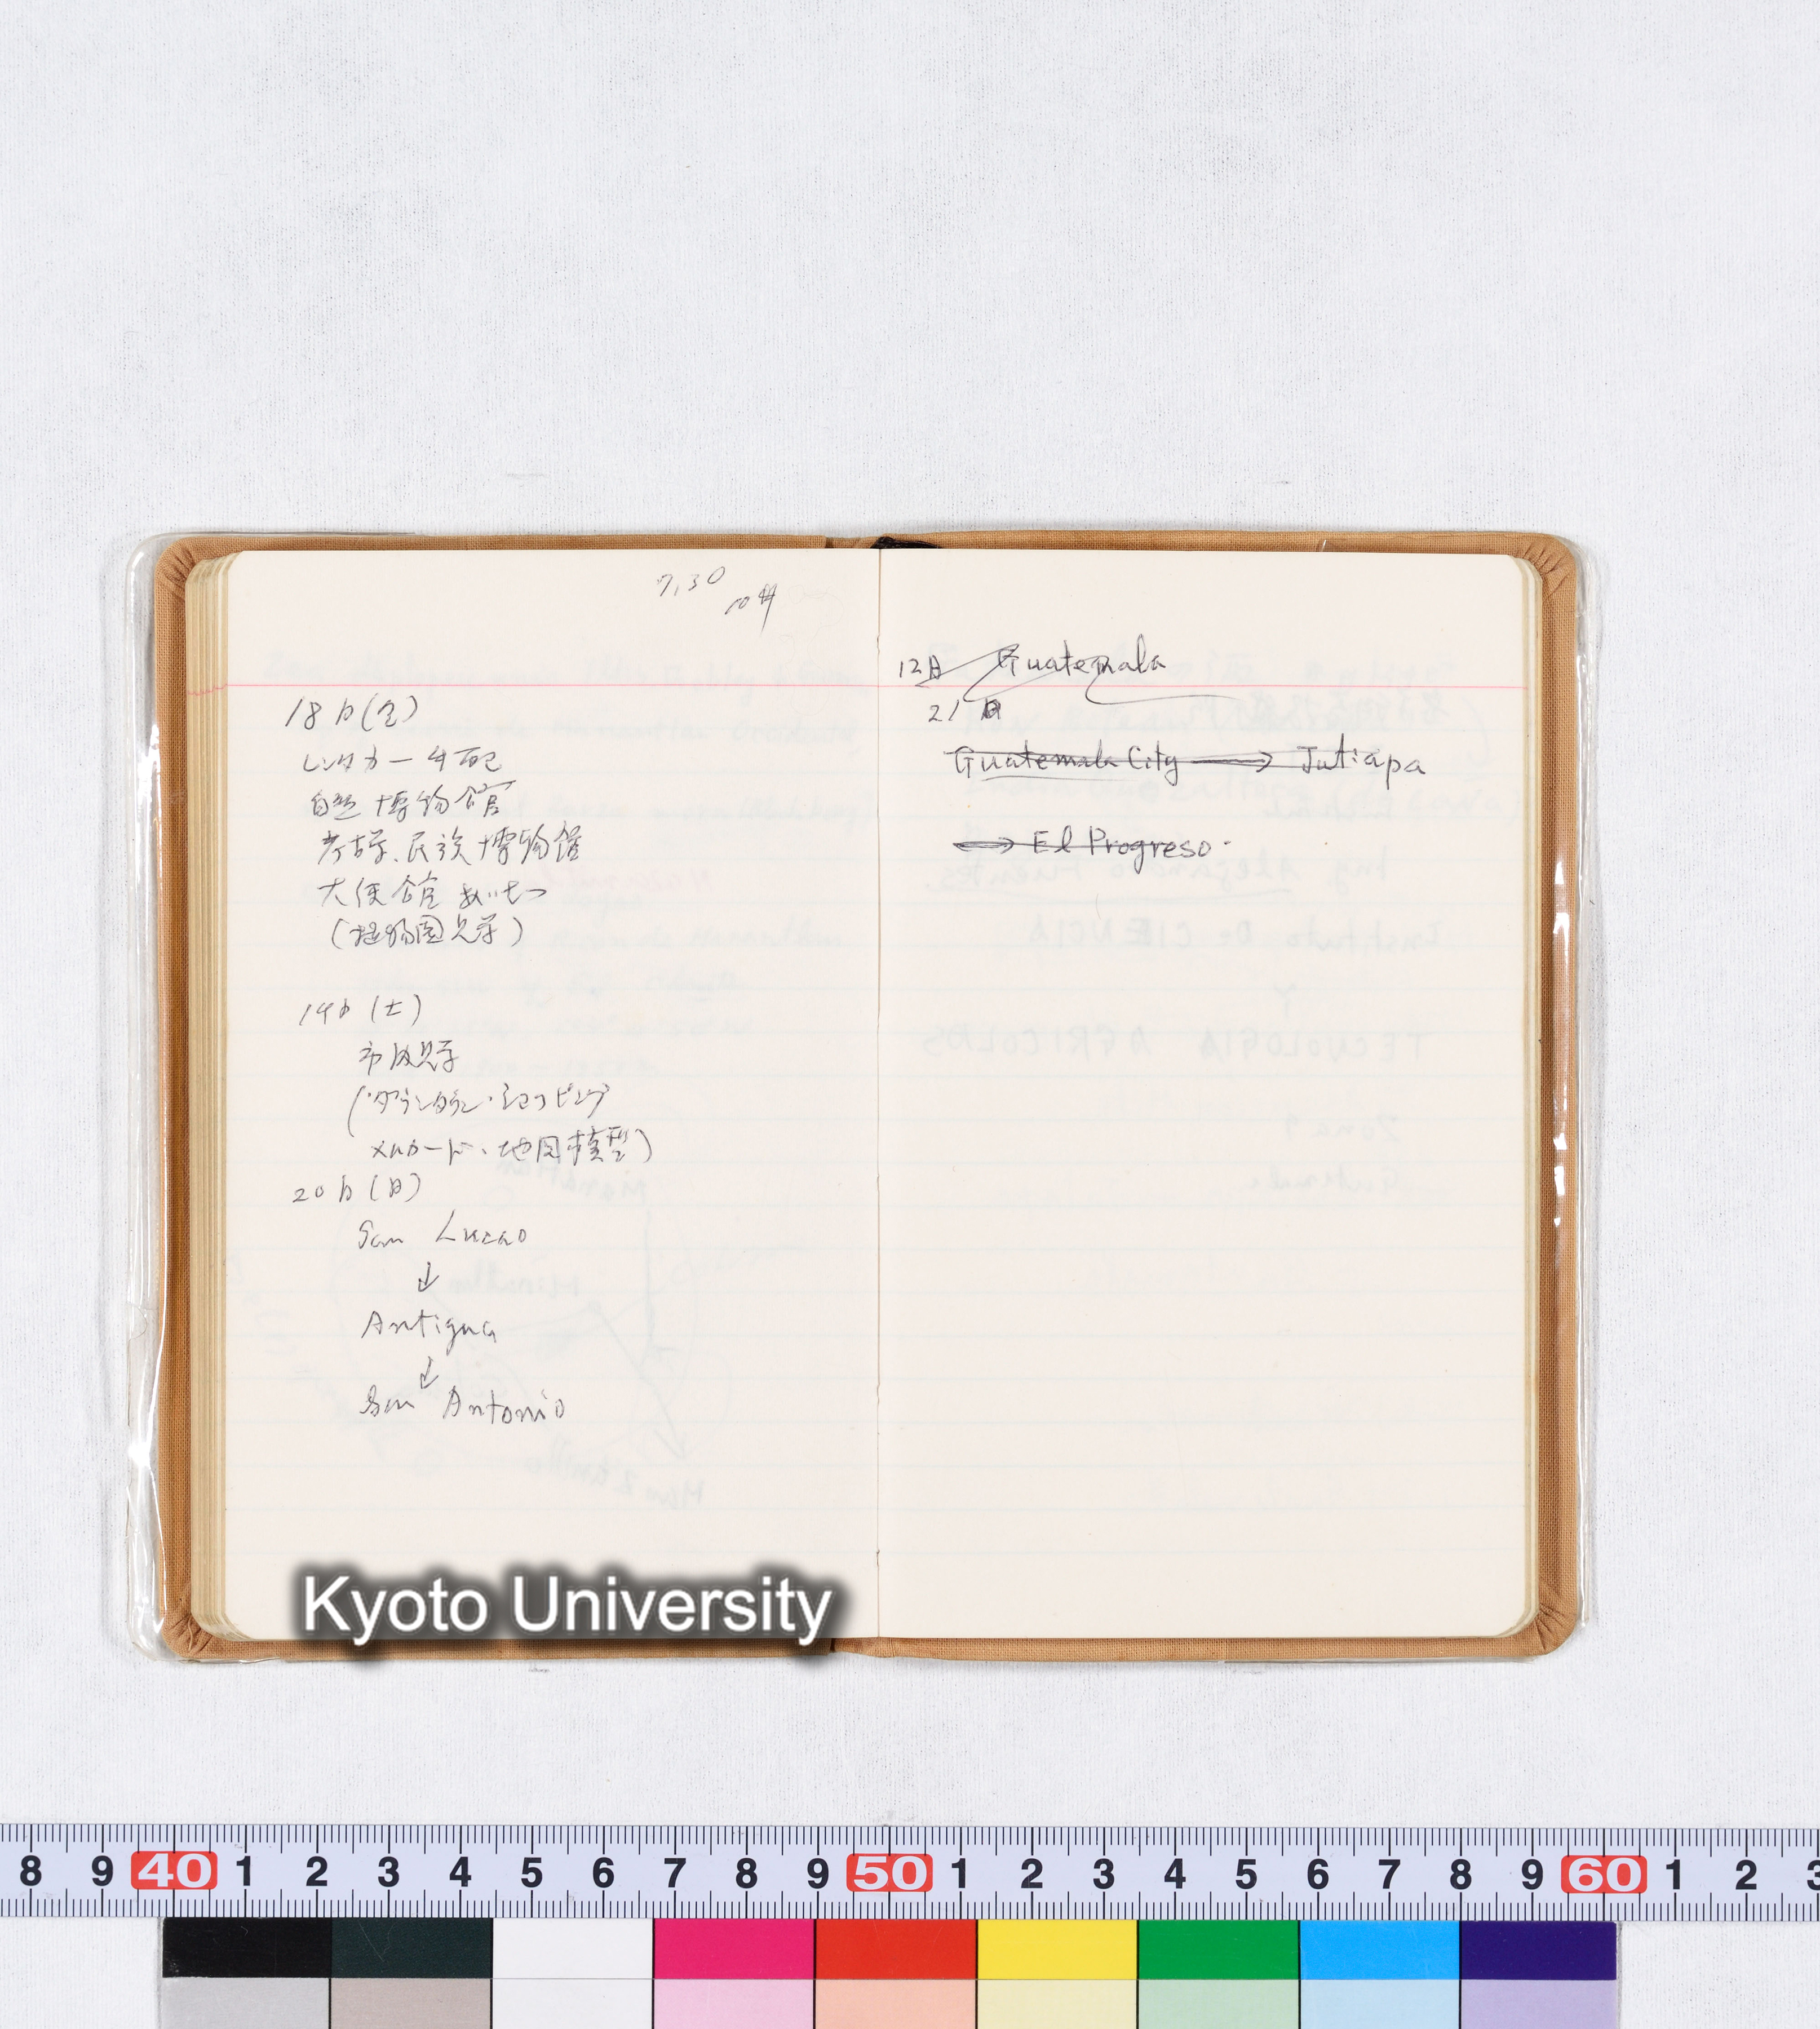 7,30
18日(金)
レンタカー手配
自然博物館
考古学、民族博物館
大使館あいさつ
(植物園見学)
19日(土)
市内見学
(ダウンタウン・ショッピング
メルカード、地図模型)
20日(日)
San Lucao
↓
Antigua
↓
San Antonio
12日 Guatemala
21日
Guatemala City → Jutiapa
→ El Progreso.
Kyoto University
8 9 40 1 2 3 4 5 6 7 8 9 50 1 2 3 4 5 6 7 8 9 60 1 2 3